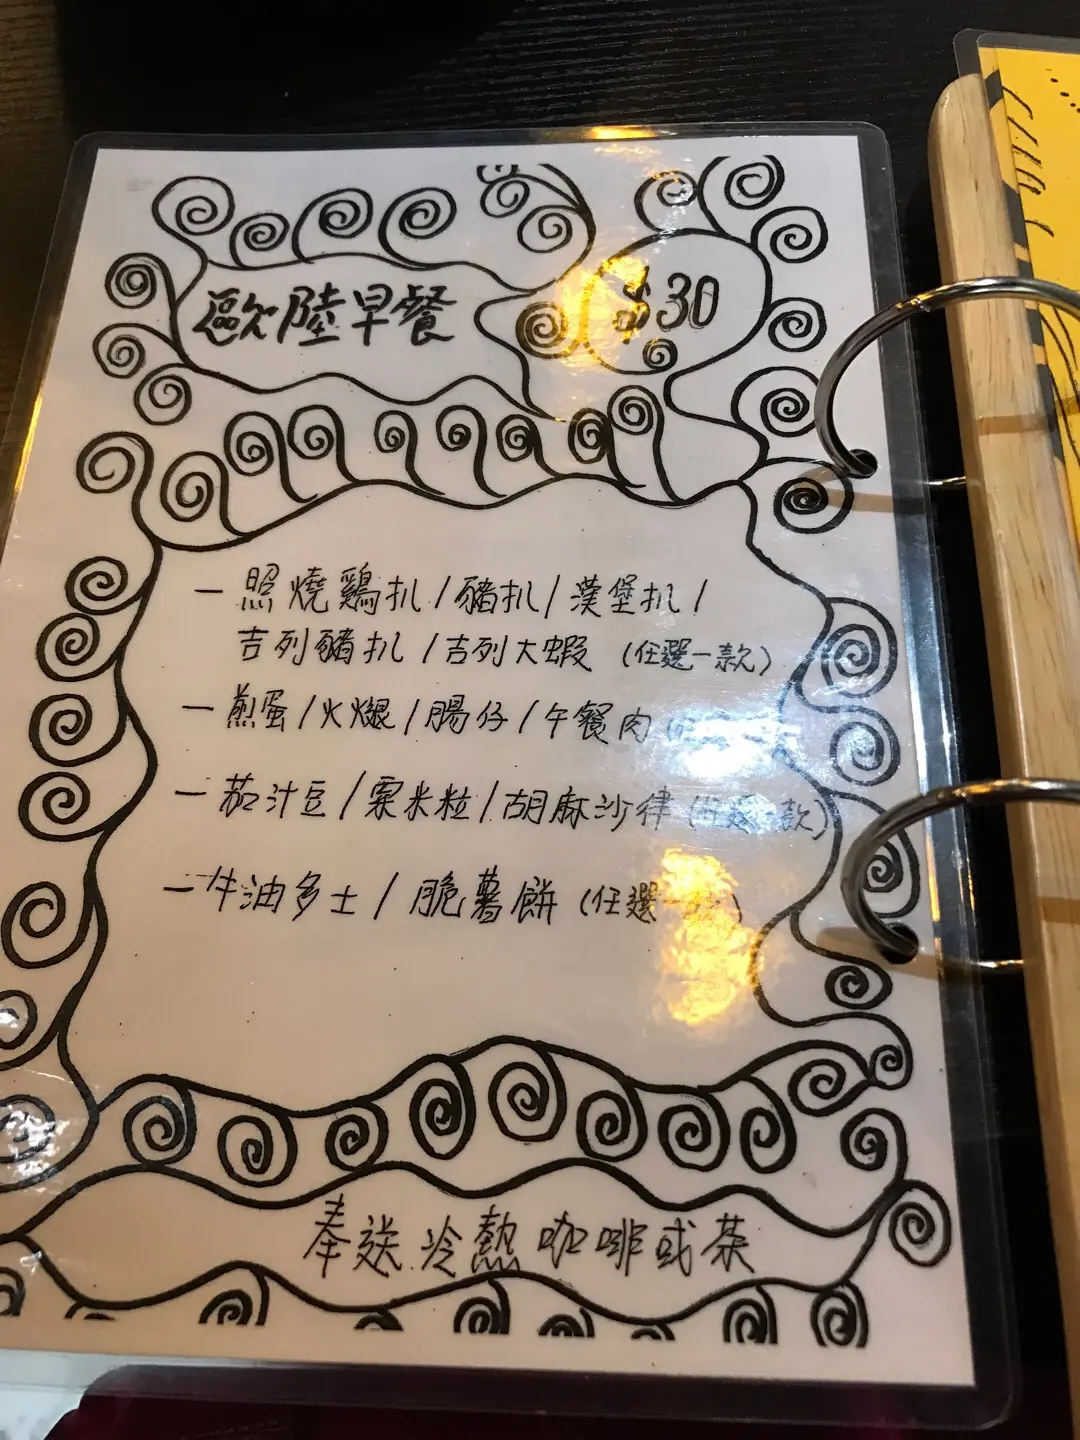 歐陸早餐 $30
一 照燒鷄扒/豬扒/漢堡扒/
吉列豬扒/吉列大蝦 (任選一款)
一 煎蛋/火腿/腸仔/午餐肉
一 茄汁豆/粟米粒/胡麻沙律 (任選一款)
一 牛油多士/脆薯餅 (任選
奉送冷熱咖啡或茶